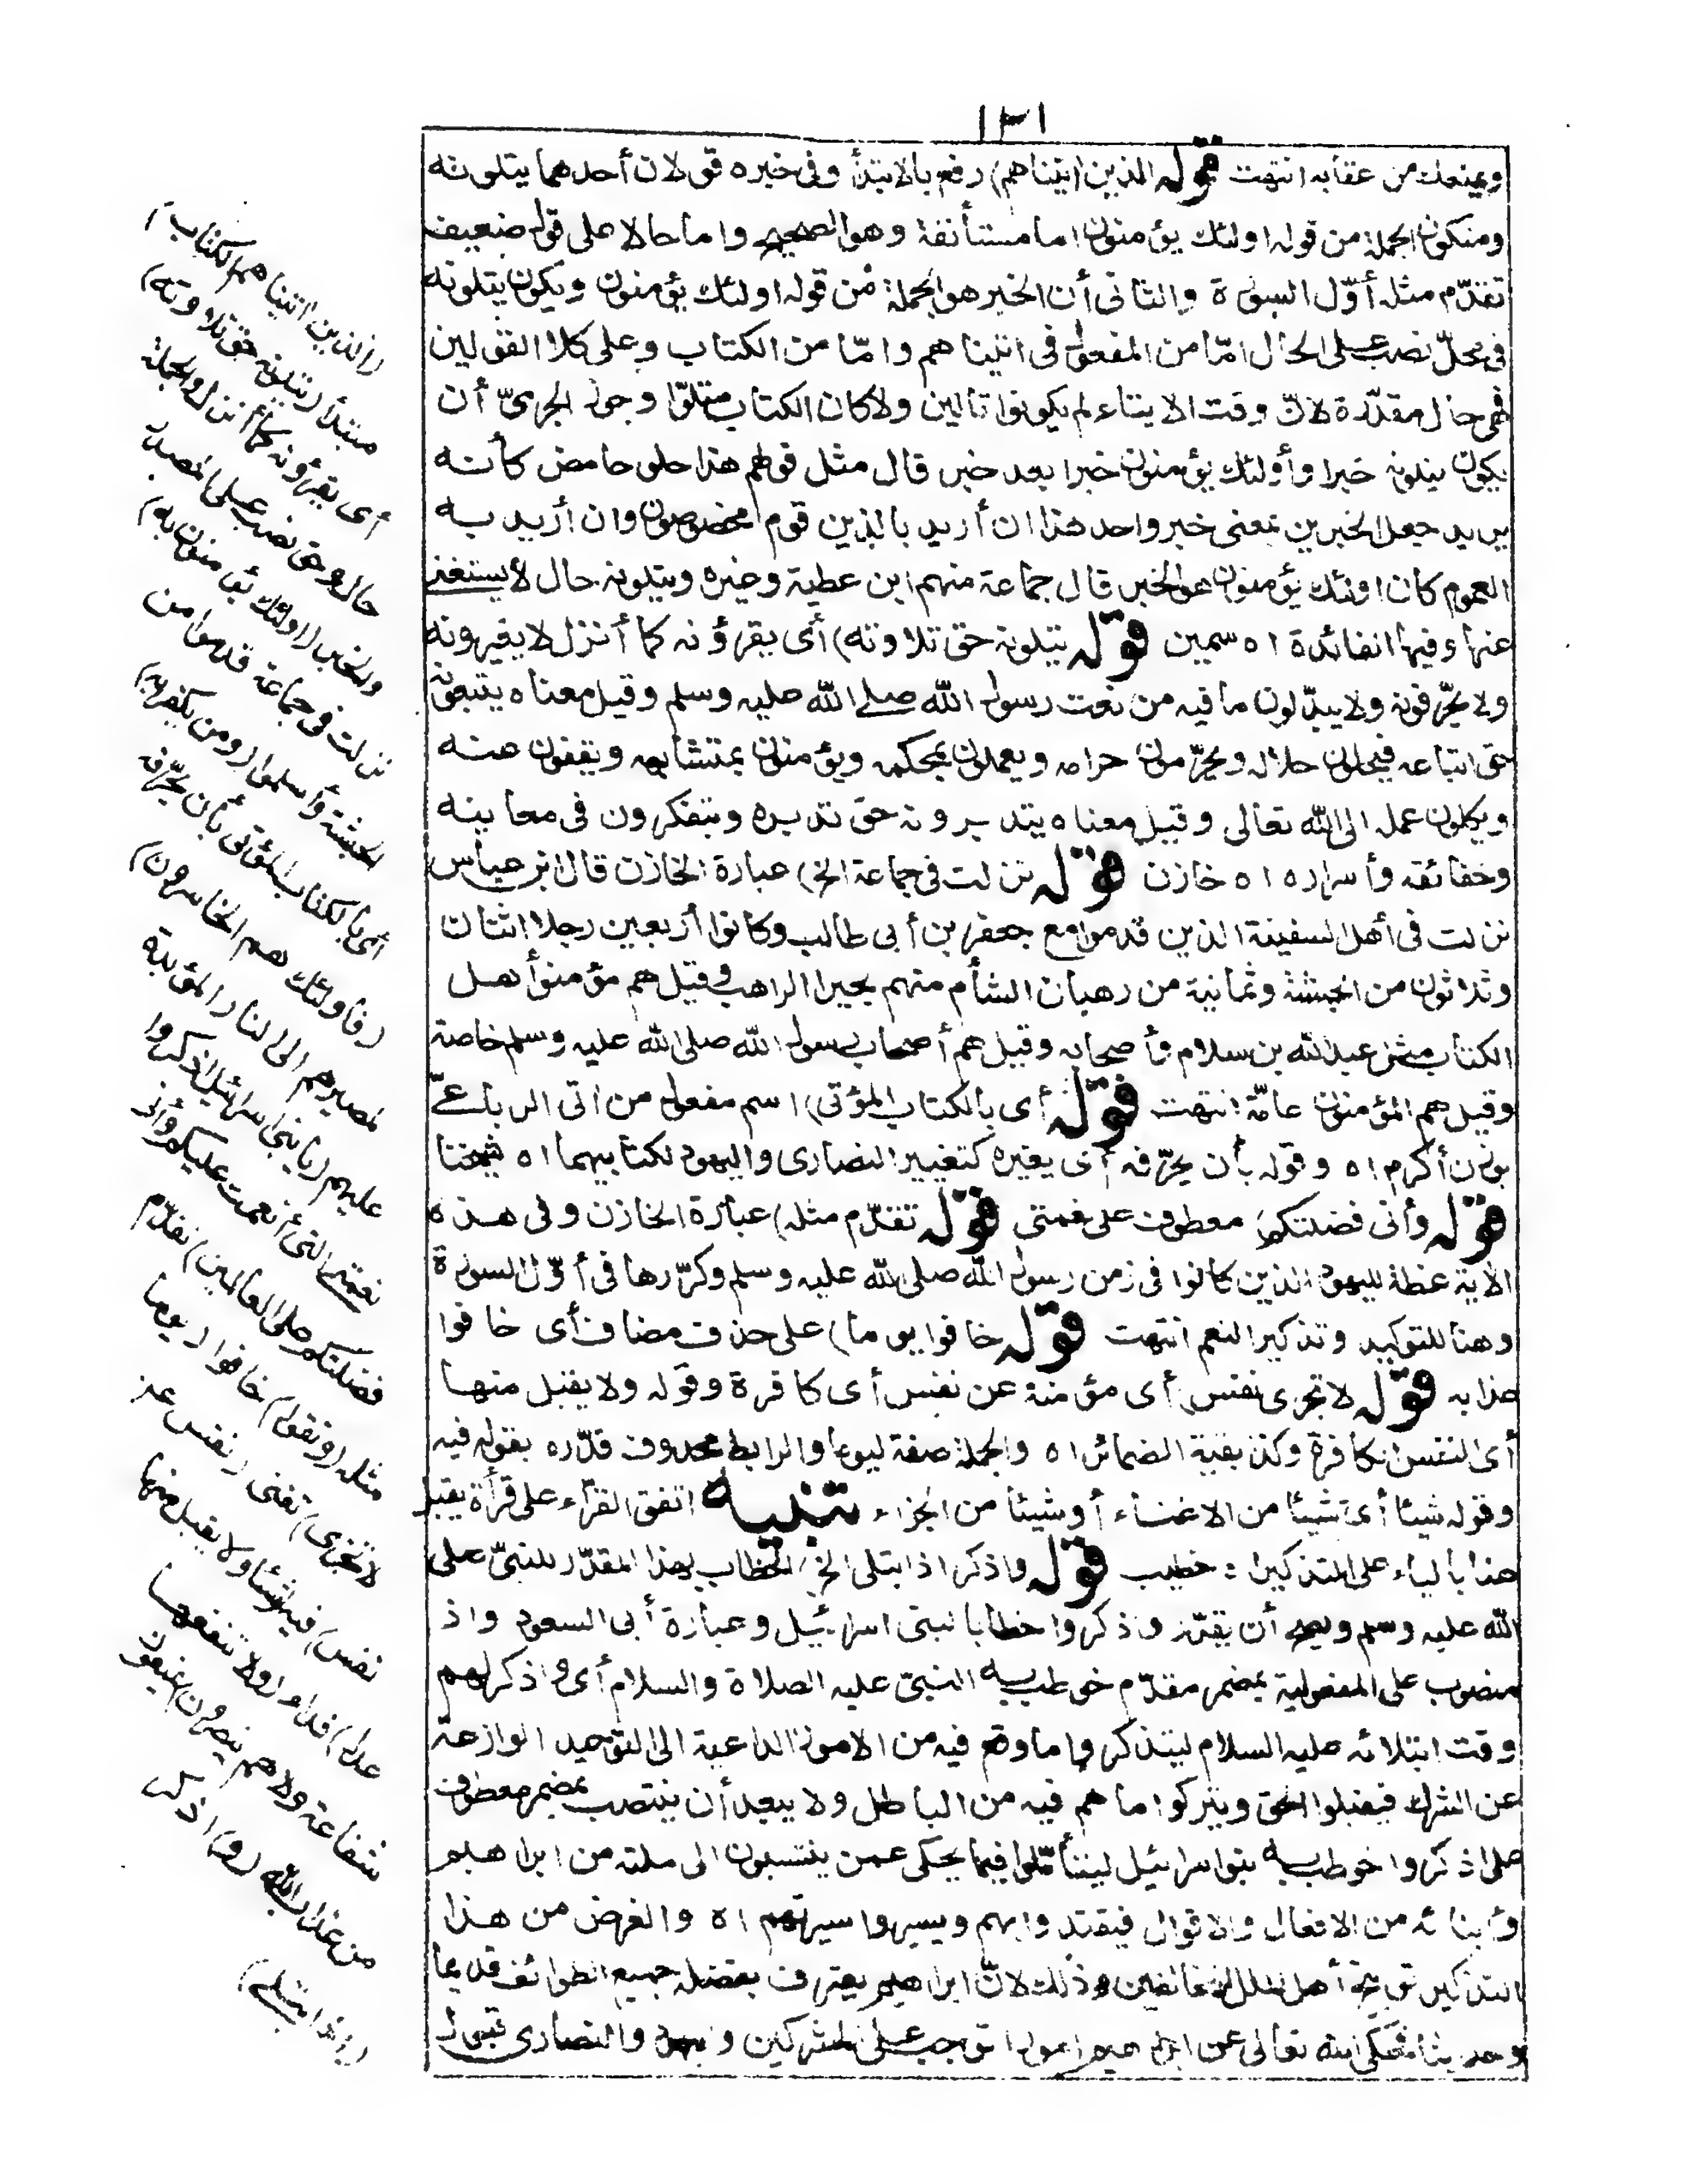 ١٣١
ويمنعك من عقابه انتهت قوله الذين اتيناهم) رفع بالابتدأ وفى خبره قولان أحدهما يتلونه
وتكون الجملة من قوله اولئك يؤمنون اما مستأنفة وهو الصحيح واما حالا على قول ضعيف
تقدّم مثله أوّل السورة والثانى أن الخبر هو الجملة من قوله اولئك يؤمنون ويكون يتلونه
فى محلّ نصب على الحال امّا من المفعول فى اتيناهم وامّا من الكتاب وعلى كلا القولين
فهى حال مقدّرة لانّ وقت الايتاء لم يكونوا تالين ولا كان الكتاب متلوّا وجوز الجرىّ أن
يكون يتلونه خبرا وأولئك يؤمنون خبرا بعد خبر قال مثل قولهم هذا حلو حامض كأنه
يريد جعل الخبرين بمعنى خبر واحد هذا ان أريد بالذين قوم مخصوصون وان أريد به
العموم كان اولئك يؤمنون هو الخبر قال جماعة منهم ابن عطية وغيره ويتلونه حال لا يستغنى
عنها وفيها الفائدة ا ه سمين قوله يتلونه حق تلاوته) أى يقرؤنه كما أنزل لا يغيرونه
ولا يحرّفونه ولا يبدّلون ما فيه من نعت رسول الله صلى الله عليه وسلم وقيل معناه يتبعونه
حق اتباعه فيحلون حلاله ويحرّمون حرامه ويعملون بمحكمه ويؤمنون بمتشابهه ويقفون عنه
ويكلون عمله الى الله تعالى وقيل معناه يتدبرونه حق تدبره ويتفكرون فى معانيه
وحقائقه وأسراره ا ه خازن قوله نزلت فى جماعة الخ) عبارة الخازن قال ابن عباس
نزلت فى أهل السفينة الذين قدموا مع جعفر بن أبى طالب وكانوا أربعين رجلا اثنان
وثلاثون من الحبشة وثمانية من رهبان الشأم منهم بحيرا الراهب وقيل هم مؤمنو أهل
الكتاب مثل عبد الله بن سلام وأصحابه وقيل هم أصحاب رسول الله صلى الله عليه وسلم خاصة
وقيل هم المؤمنون عامّة انتهت قوله أى بالكتاب المؤتى) اسم مفعول من اتى الرباعىّ
بوزن أكرم ا ه وقوله بأن يحرّفه أى يغيره كتغيير النصارى واليهود لكتابيهما ا ه شيخنا
قوله وأنى فضلتكم) معطوف على نعمتى قوله تقدّم مثله) عبارة الخازن وفى هذه
الاية عظة لليهود الذين كانوا فى زمن رسول الله صلى الله عليه وسلم وكرّرها فى أوّل السورة
وهنا للتوكيد وتذكير النعم انتهت قوله خافوا يوما) على حذف مضاف أى خافوا
عذابه قوله لا تجزى نفس) أى مؤمنة عن نفس أى كافرة وقوله ولا يقبل منها
أى النفس الكافرة وكذا بقية الضمائر ا ه والجملة صفة ليوما والرابط محذوف قدّره بقوله فيه
وقوله شيئا أى شيئا من الاغناء أو شيئا من الجزاء تنبيه اتفق القرّاء على قرأة يقبل
هنا بالياء على التذكير ا ه خطيب قوله واذكر اذ ابتلى الخ) الخطاب بهذا المقدّر للنبىّ صلى
الله عليه وسلم ويصح أن يقدّر واذكروا خطابا لبنى اسرائيل وعبارة أبى السعود واذ
منصوب على المفعولية بمضمر مقدّم خوطب به النبىّ عليه الصلاة والسلام أى واذكر لهم
وقت ابتلائه عليه السلام ليتذكروا ما وقع فيه من الامور الداعية الى التوحيد الوازعة
عن الشرك فيقبلوا الحق ويتركوا ما هم فيه من الباطل ولا يبعد أن ينتصب بمضمر معطوف
على اذكروا خوطب به بنو اسرائيل ليتأمّلوا فيما يحكى عمن ينتسبون الى ملته من ابراهيم
وأبنائه من الافعال والاقوال فيقتدوا بهم ويسيروا سيرتهم ا ه والغرض من هذا
التذكير توبيخ أهل الملل المخالفين وذلك لانّ ابراهيم يعترف بفضله جميع الطوائف قديما
وحديثا فحكى الله تعالى عن ابراهيم امورا توجب على المشركين واليهود والنصارى قبول
(الذين اتيناهم الكتاب)
مبتدأ (يتلونه حق تلاوته)
أى يقرؤنه كما أنزل والجملة
حال وحق نصب على المصدر
والخبر (اولئك يؤمنون به)
نزلت فى جماعة قدموا من
الحبشة وأسلموا (ومن يكفر به)
أى بالكتاب المؤتى بأن يحرّفه
(فأولئك هم الخاسرون)
لمصيرهم الى النار المؤبدة
عليهم (يا بنى اسرائيل اذكروا
نعمتى التى أنعمت عليكم وأنى
فضلتكم على العالمين) تقدّم
مثله (واتقوا) خافوا (يوما
لا تجزى) تغنى (نفس عن
نفس) فيه (شيئا ولا يقبل منها
عدل) فداء (ولا تنفعها
شفاعة ولا هم ينصرون) يمنعون
من عذاب الله (و) اذكر
(اذ ابتلى)